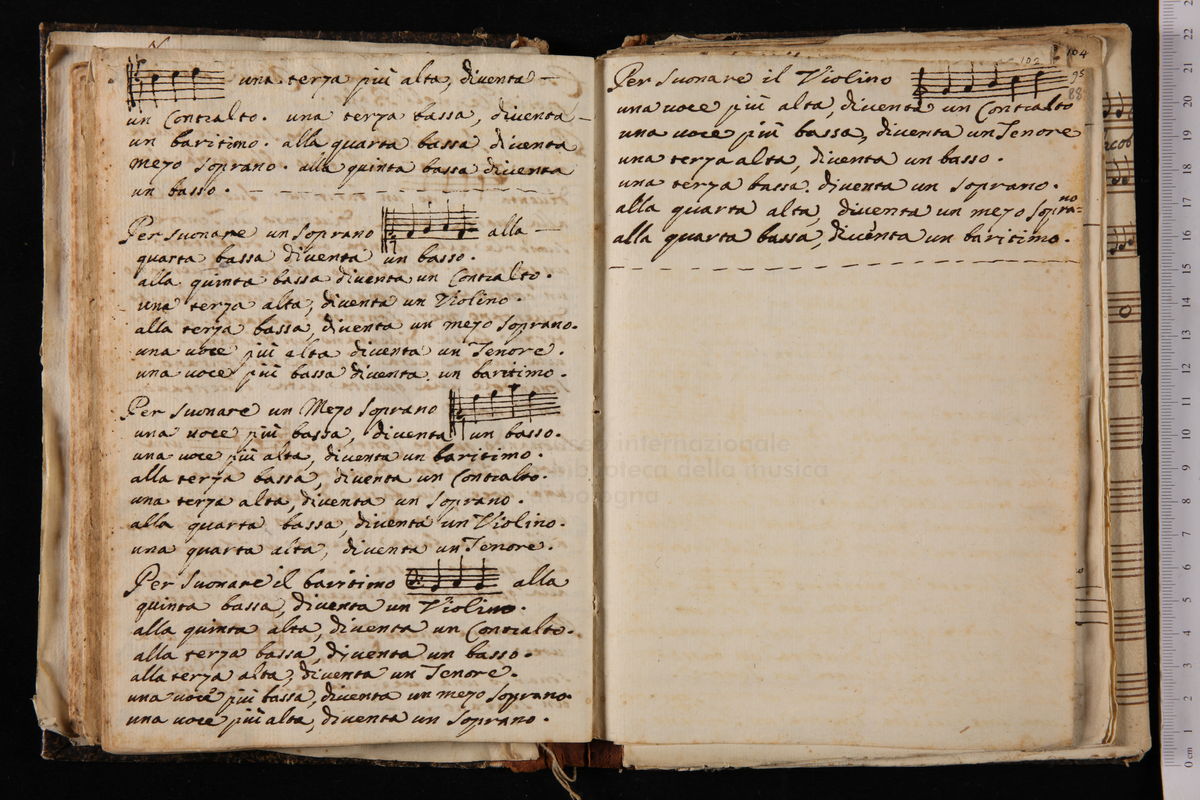 una terza più alta, diventa —
un Contralto. una terza bassa, diventa —
un baritimo. alla quarta bassa diventa
mezo soprano. alla quinta bassa diventa
un basso.
Per suonare un soprano alla —
quarta bassa diventa un basso.
alla quinta bassa diventa un Contralto.
una terza alta, diventa un Violino.
alla terza bassa, diventa un mezo soprano.
una voce più alta diventa un Tenore.
una voce più bassa diventa un baritimo.
Per suonare un Mezo soprano
una voce più bassa, diventa un basso.
una voce più alta, diventa un baritimo.
alla terza bassa, diventa un Contralto.
una terza alta, diventa un soprano.
alla quarta bassa, diventa un Violino.
una quarta alta, diventa un Tenore.
Per suonare il baritimo alla
quinta bassa, diventa un Violino.
alla quinta alta, diventa un Contralto.
alla terza bassa, diventa un basso.
alla terza alta, diventa un Tenore.
una voce più bassa, diventa un mezo soprano.
una voce più alta, diventa un soprano.
104
102
95
88
Per suonare il Violino
una voce più alta, diventa un Contralto
una voce più bassa, diventa un Tenore
una terza alta, diventa un basso.
una terza bassa. diventa un soprano.
alla quarta alta, diventa un mezo soprano
alla quarta bassa, diventa un baritimo.
museo internazionale
e biblioteca della musica
di bologna